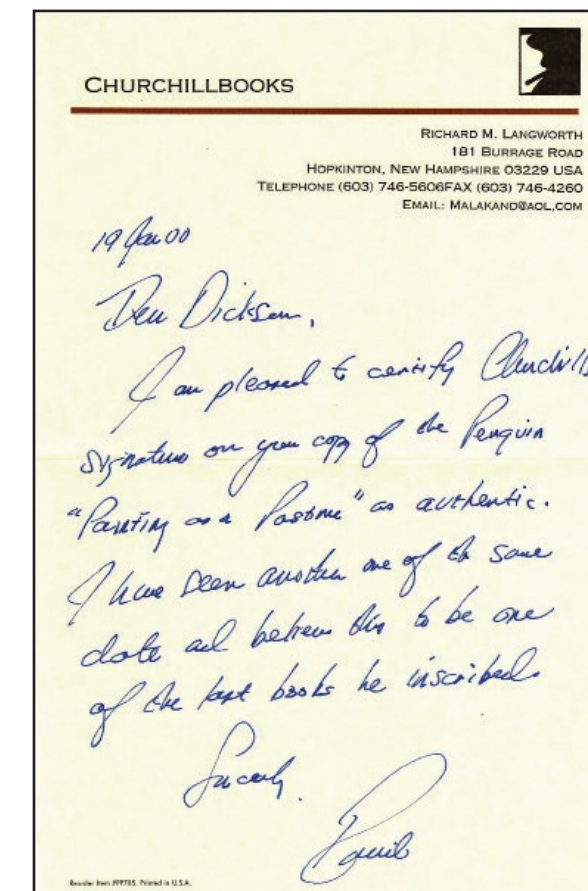 CHURCHILLBOOKS
RICHARD M. LANGWORTH
181 BURRAGE ROAD
HOPKINTON, NEW HAMPSHIRE 03229 USA
TELEPHONE (603) 746-5606FAX (603) 746-4260
EMAIL: MALAKAND@AOL.COM
19 Jan 00
Dear Dickson,
I am pleased to certify Churchill's
signature on your copy of the Penguin
"Painting as a Pastime" as authentic.
I have seen another one of the same
date and believe this to be one
of the last books he inscribed.
Sincerely,
Reorder Item #PP785. Printed in U.S.A.